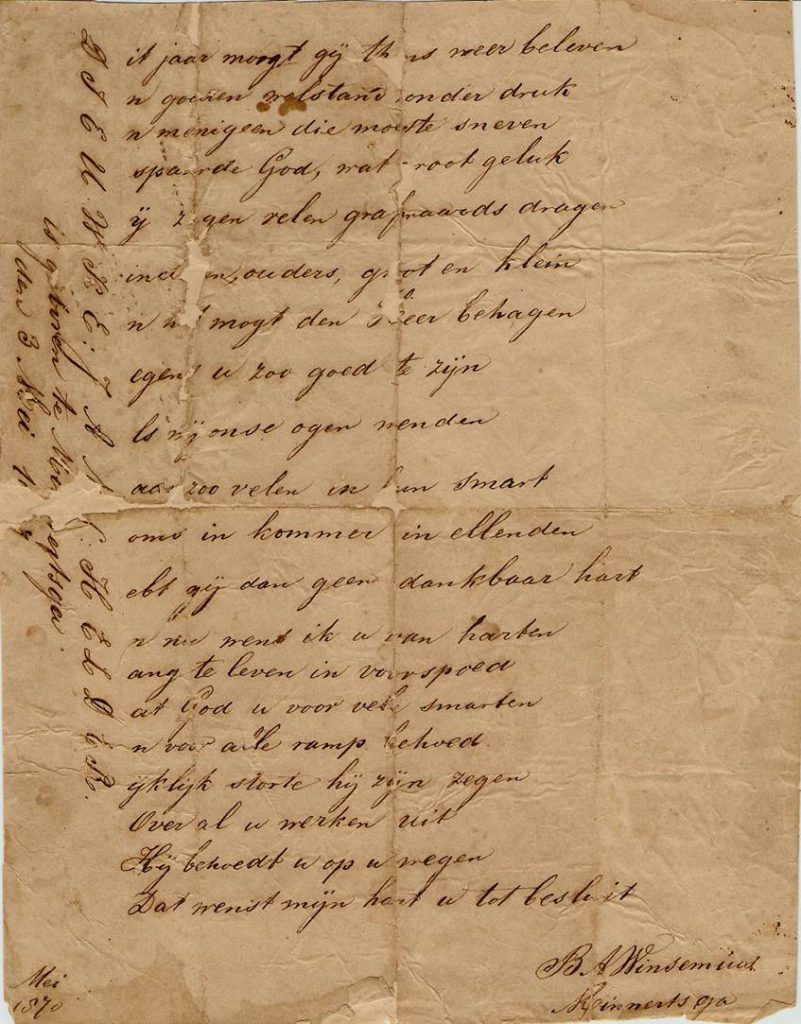 it jaar moogt gij th ns weer beleven
n goeden welstand onder druk
n menigeen die moeste sneven
spaarde God, wat root geluk
ij z gen velen grafwaards dragen
ind en, ouders, groot en klein
n mogt den Heer behagen
egens u zoo goed te zijn
ls wij onse ogen wenden
aar zoo velen in hun smart
oms in kommer in ellenden
ebt gij dan geen dankbaar hart
n nu wens ik u van harten
ang te leven in voorspoed
at God u voor vele smarten
n voor alle ramp behoed.
ijklijk storte hij zijn zegen
Over al u werken uit
Hij behoedt u op u wegen
Dat wenst mijn hart u tot besluit
B A Winsemius
Minnertsga
Mei
1870
D I E U W K E: J A N S: H E L D E R.
is g boren te Min ertsga
den 3 Mei